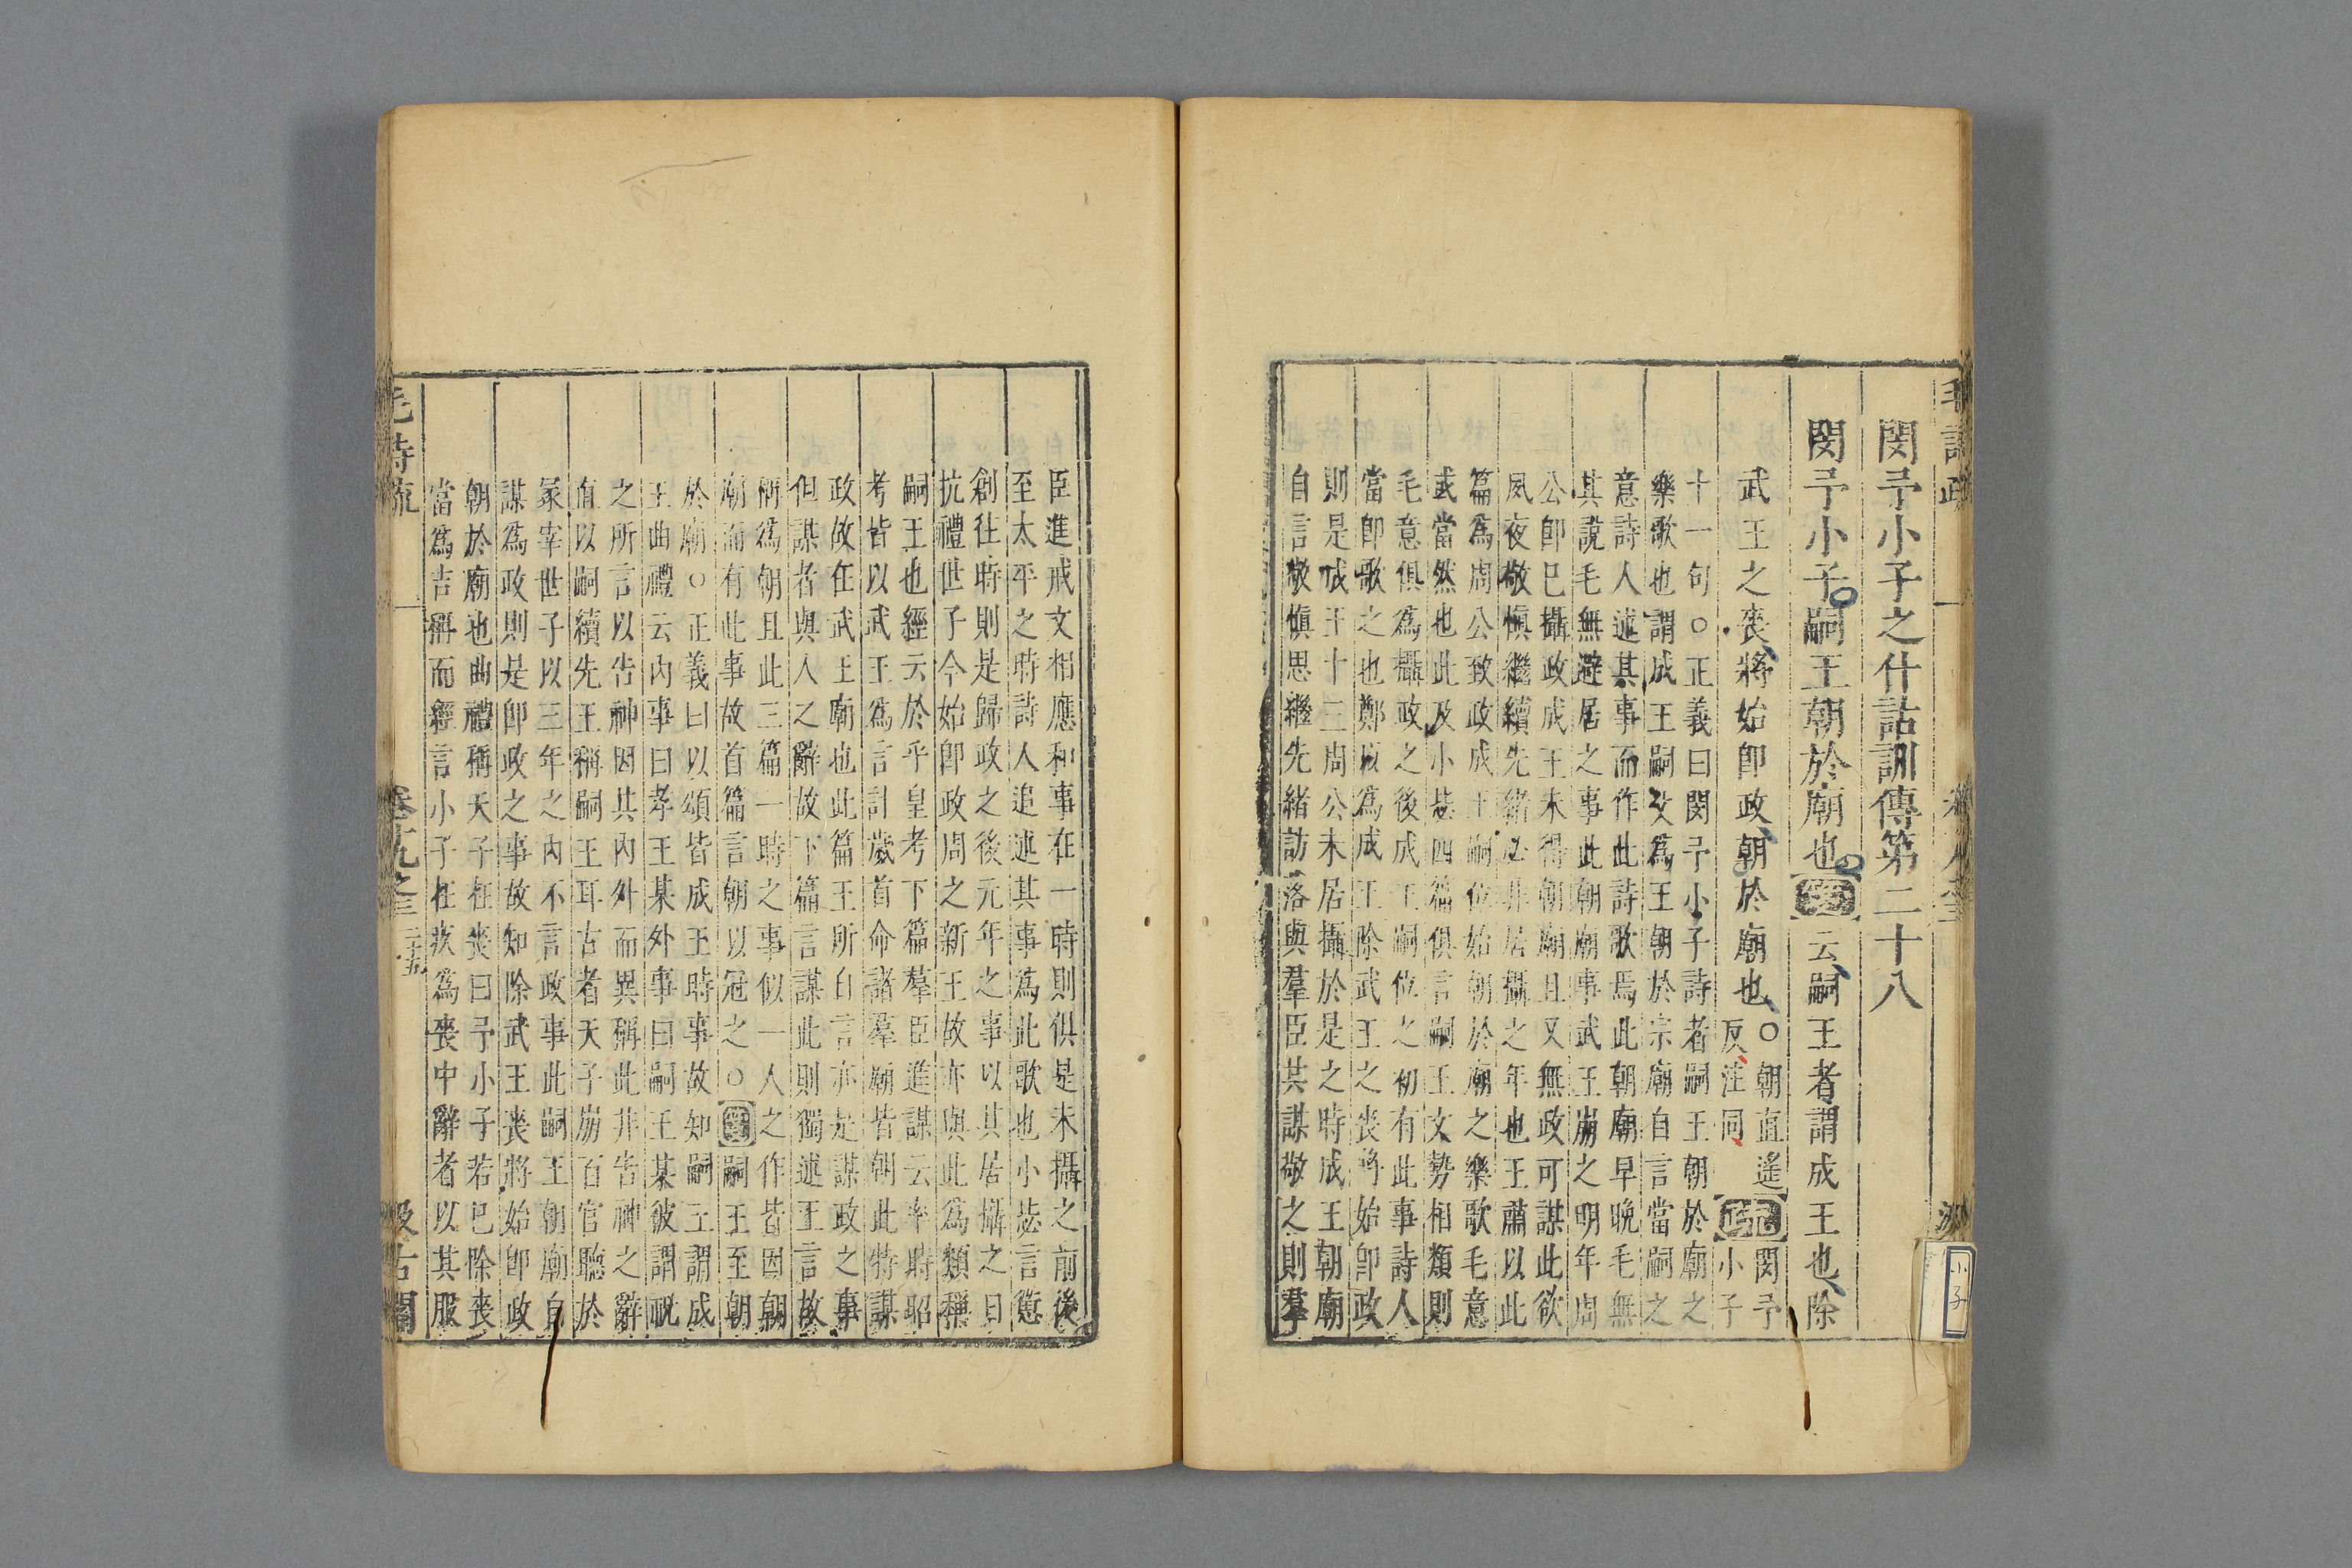 閔予小子之什詁訓傳第二十八
閔予小子嗣王朝於廟也箋云嗣王者謂成王也除
武王之喪將始卽政朝於廟也○朝直遙
反注同疏閔予
小子
十一句○正義曰閔予小子詩者嗣王朝於廟之
樂歌也謂成王嗣父爲王朝於宗廟自言當嗣之
意詩人述其事而作此詩歌焉此朝廟早晚毛無
其說毛無避居之事此朝廟事武王崩之明年周
公卽已攝政成王未得朝廟且又無政可謀此欲
夙夜敬慎繼續先緒必非居攝之年也王肅以此
篇爲周公致政成王嗣位始朝於廟之樂歌毛意
或當然也此及小毖四篇俱言嗣王文勢相類則
毛意俱爲攝政之後成王嗣位之初有此事詩人
當卽歌之也鄭以爲成王除武王之喪將始卽政
則是成王十三周公未居攝於是之時成王朝廟
自言敬慎思繼先緒訪落與羣臣共謀敬之則羣
小子
臣進戒文相應和事在一時則俱是未攝之前後
至太平之時詩人追述其事爲此歌也小毖言懲
創往時則是歸政之後元年之事以其居攝之日
抗禮世子今始卽政周之新王故亦與此爲類稱
嗣王也經云於乎皇考下篇羣臣進謀云率時昭
考皆以武王爲言計歲首命諸羣廟皆朝此特謀
政故在武王廟也此篇王所自言亦是謀政之事
但謀者與人之辭故下篇言謀此則獨述王言故
稱爲朝且此三篇一時之事似一人之作皆因朝
廟而有此事故首篇言朝以冠之○箋嗣王至朝
於廟○正義曰以頌皆成王時事故知嗣王謂成
王曲禮云內事曰孝王某外事曰嗣王某彼謂祝
之所言以告神因其內外而異稱此非告神之辭
直以嗣續先王稱嗣王耳古者天子崩百官聽於
冢宰世子以三年之內不言政事此嗣王朝廟自
謀爲政則是卽政之事故知除武王喪將始卽政
朝於廟也曲禮稱天子在喪曰予小子若已除喪
當爲吉稱而經言小子在疚爲喪中辭者以其服
毛詩疏 卷十九之三 三十五 汲古閣